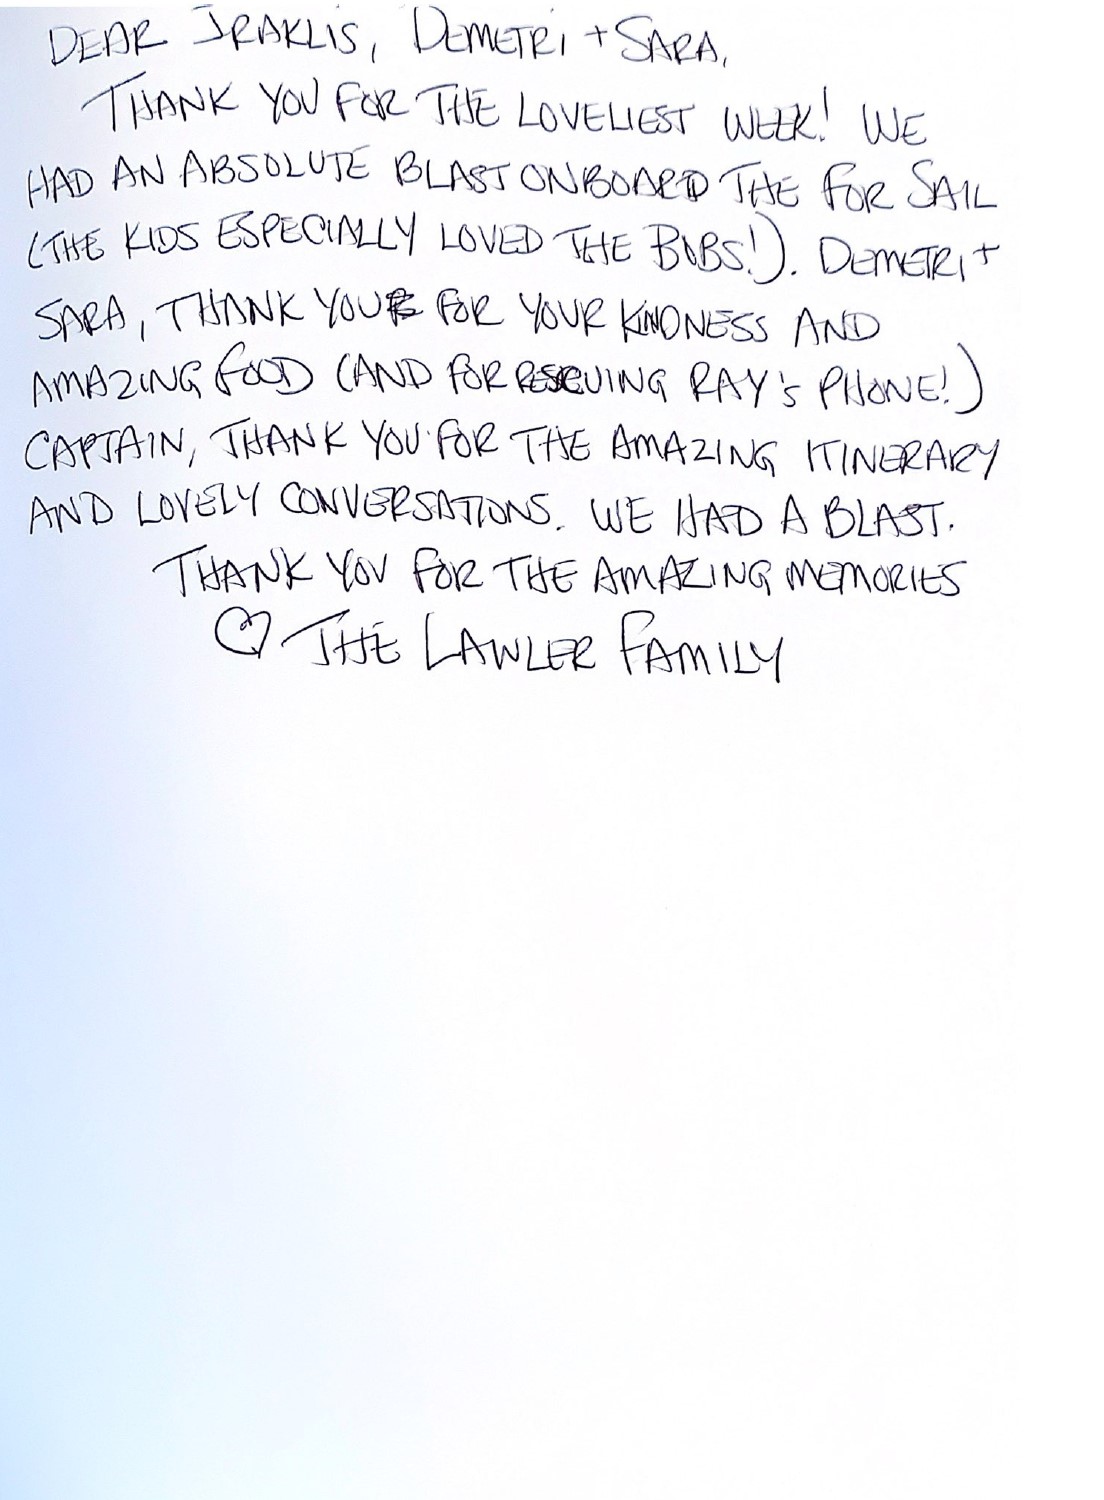 DEAR IRAKLIS, DEMETRI + SARA,
THANK YOU FOR THE LOVELIEST WEEK! WE
HAD AN ABSOLUTE BLAST ONBOARD THE FOR SAIL
(THE KIDS ESPECIALLY LOVED THE BOBS!). DEMETRI +
SARA, THANK YOU FOR YOUR KINDNESS AND
AMAZING FOOD (AND FOR RESCUING RAY'S PHONE!)
CAPTAIN, THANK YOU FOR THE AMAZING ITINERARY
AND LOVELY CONVERSATIONS. WE HAD A BLAST.
THANK YOU FOR THE AMAZING MEMORIES
♡ THE LAWLER FAMILY